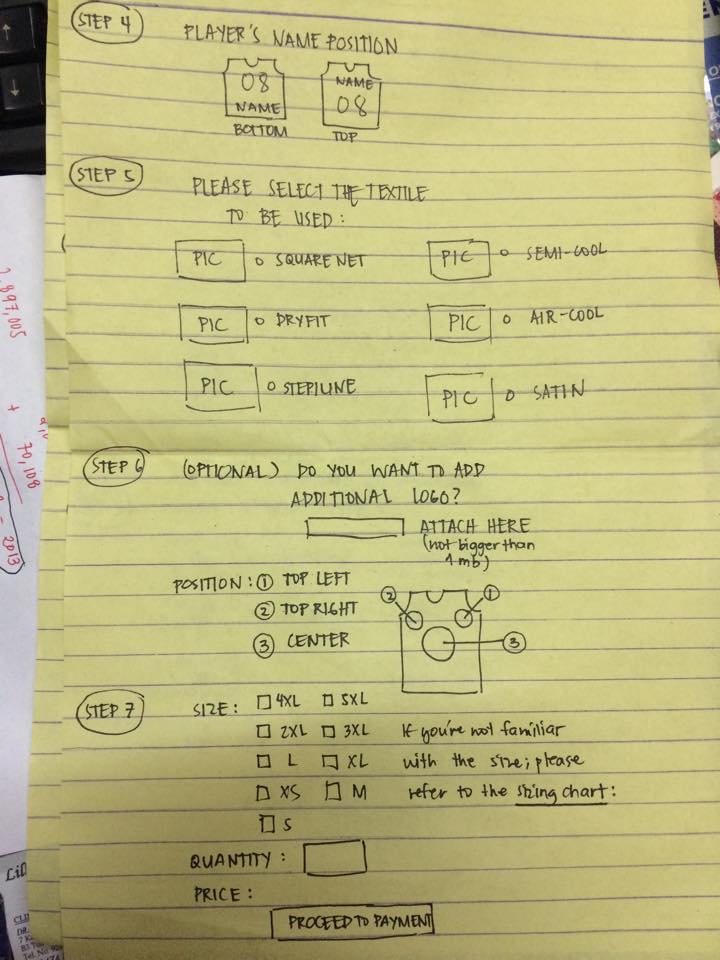 STEP 4
PLAYER'S NAME POSITION
08 NAME
NAME 08
BOTTOM TOP
STEP 5
PLEASE SELECT THE TEXTILE
TO BE USED:
PIC SQUARE NET PIC SEMI-COOL
PIC DRYFIT PIC AIR-COOL
PIC STEPILINE PIC SATIN
STEP 6
(OPTIONAL) DO YOU WANT TO ADD
ADDITIONAL LOGO?
ATTACH HERE
(not bigger than
1 mb)
POSITION: 1 TOP LEFT
2 TOP RIGHT
3 CENTER
2 1
3
STEP 7
SIZE: 4XL 5XL
2XL 3XL If you're not familiar
L XL with the size; please
XS M refer to the sizing chart:
S
QUANTITY:
PRICE:
PROCEED TO PAYMENT
897,005
+ 70,108
2013